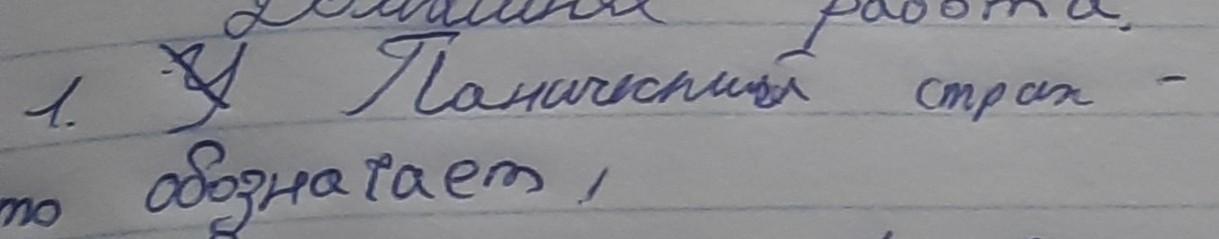 Домашняя работа.
1. Панический страх -
то обозначает,